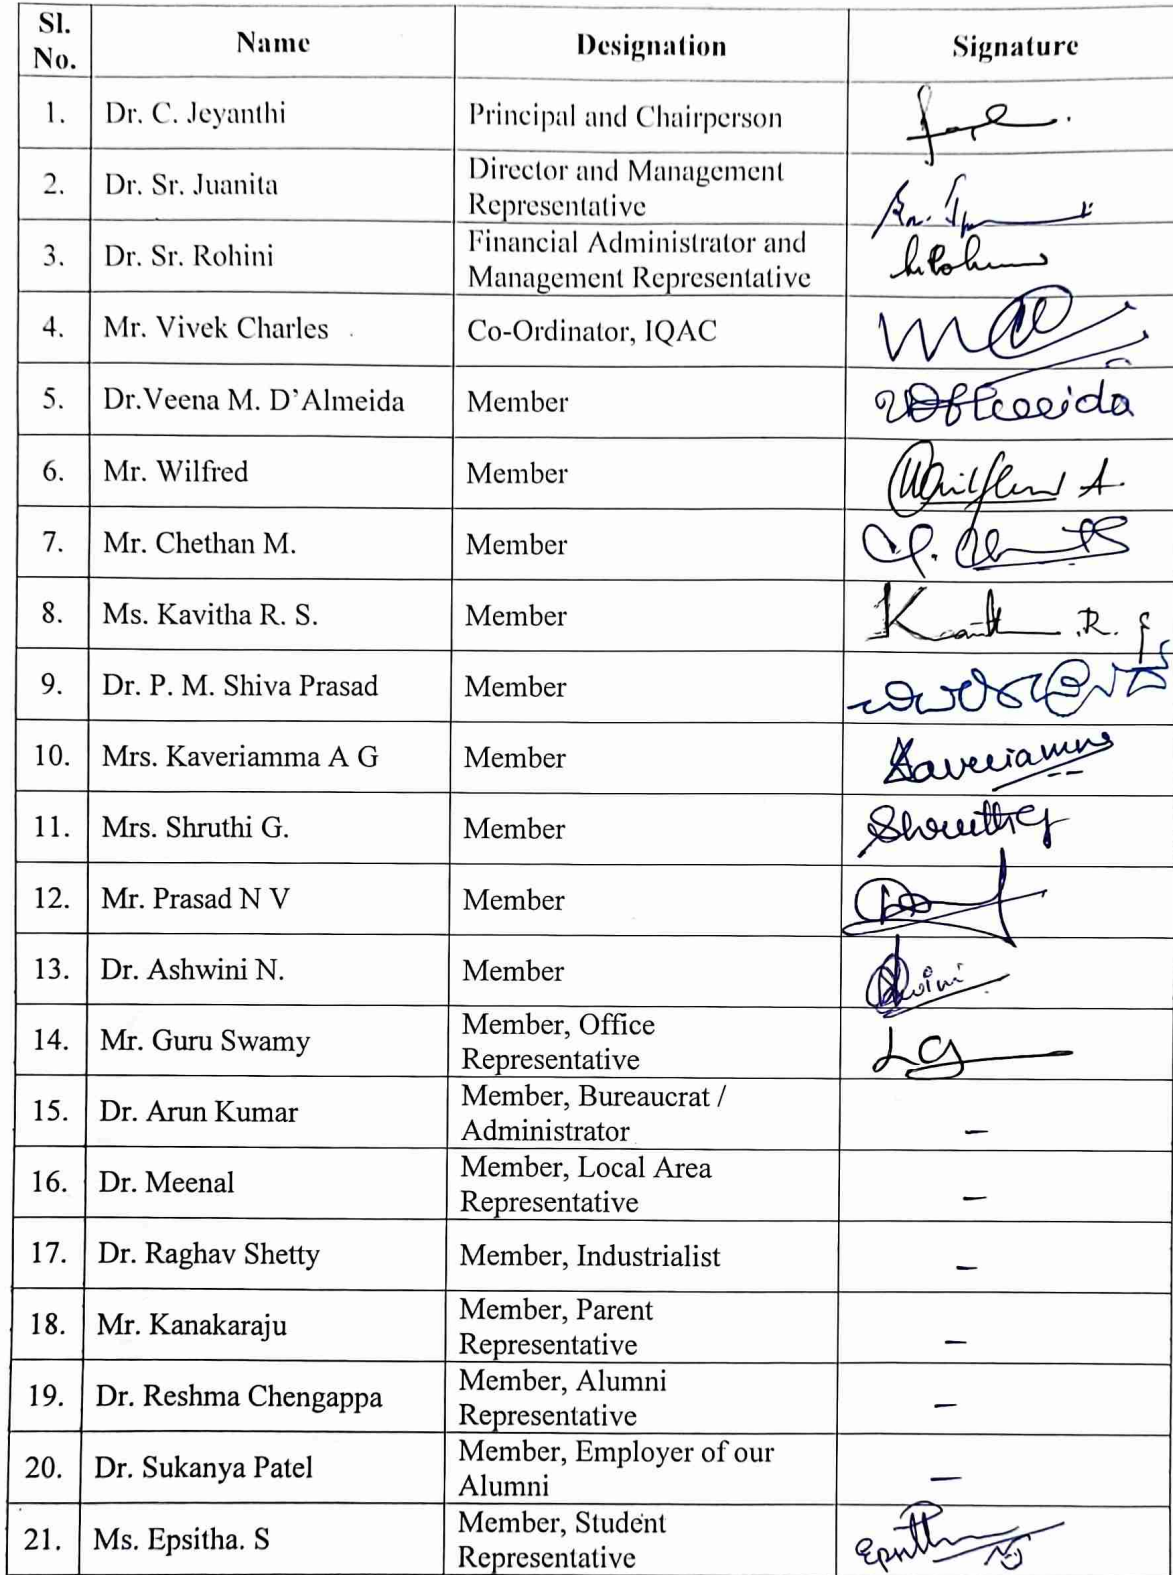 Sl. No. Name Designation Signature
1. Dr. C. Jeyanthi Principal and Chairperson
2. Dr. Sr. Juanita Director and Management
Representative
3. Dr. Sr. Rohini Financial Administrator and
Management Representative
4. Mr. Vivek Charles Co-Ordinator, IQAC
5. Dr.Veena M. D’Almeida Member
6. Mr. Wilfred Member
7. Mr. Chethan M. Member
8. Ms. Kavitha R. S. Member
9. Dr. P. M. Shiva Prasad Member
10. Mrs. Kaveriamma A G Member Kaveriamma
11. Mrs. Shruthi G. Member
12. Mr. Prasad N V Member
13. Dr. Ashwini N. Member
14. Mr. Guru Swamy Member, Office
Representative
15. Dr. Arun Kumar Member, Bureaucrat /
Administrator –
16. Dr. Meenal Member, Local Area
Representative –
17. Dr. Raghav Shetty Member, Industrialist –
18. Mr. Kanakaraju Member, Parent
Representative –
19. Dr. Reshma Chengappa Member, Alumni
Representative –
20. Dr. Sukanya Patel Member, Employer of our
Alumni –
21. Ms. Epsitha. S Member, Student
Representative